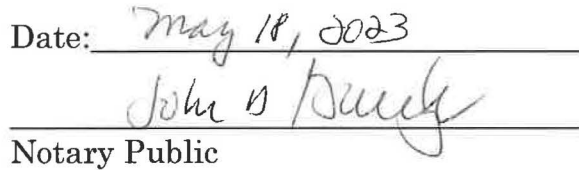 Date: May 18, 2023
John D
Notary Public